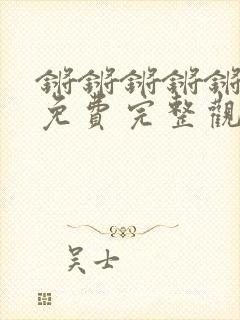 锵锵锵锵锵
免費完整觀
吴士